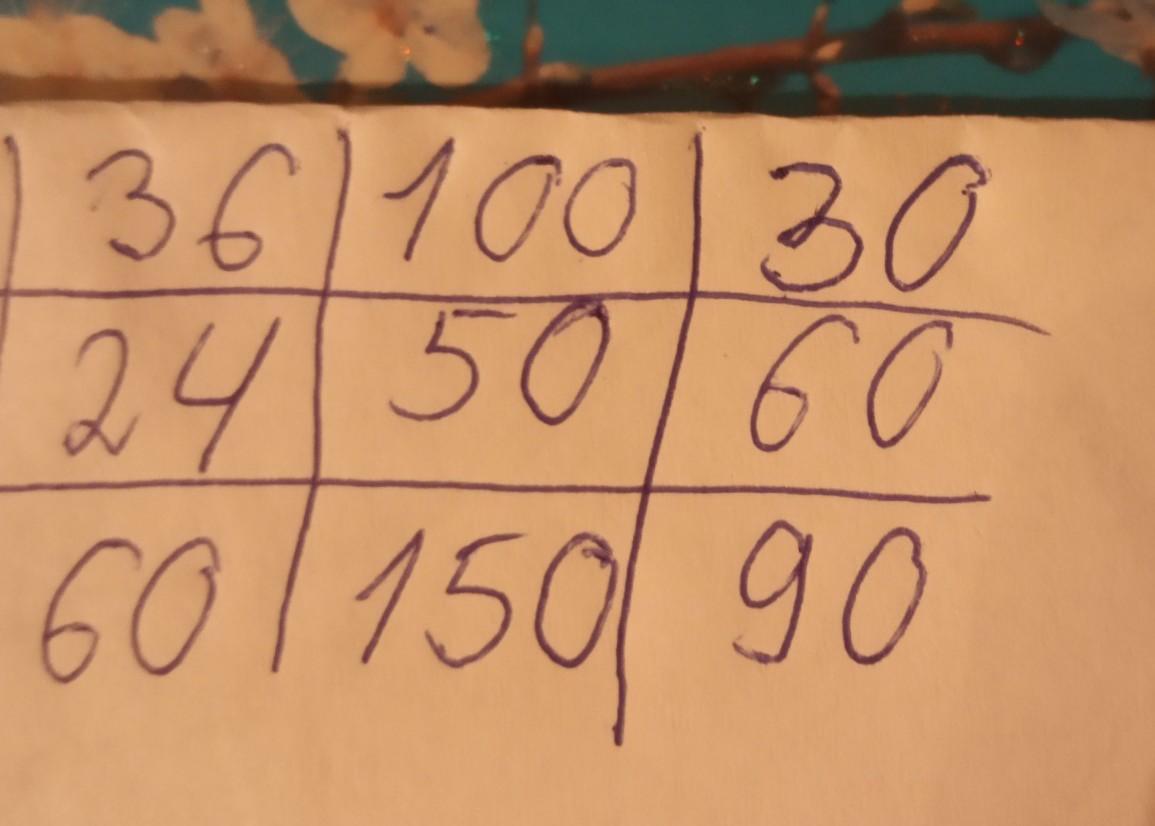 36 100 30
24 50 60
60 150 90